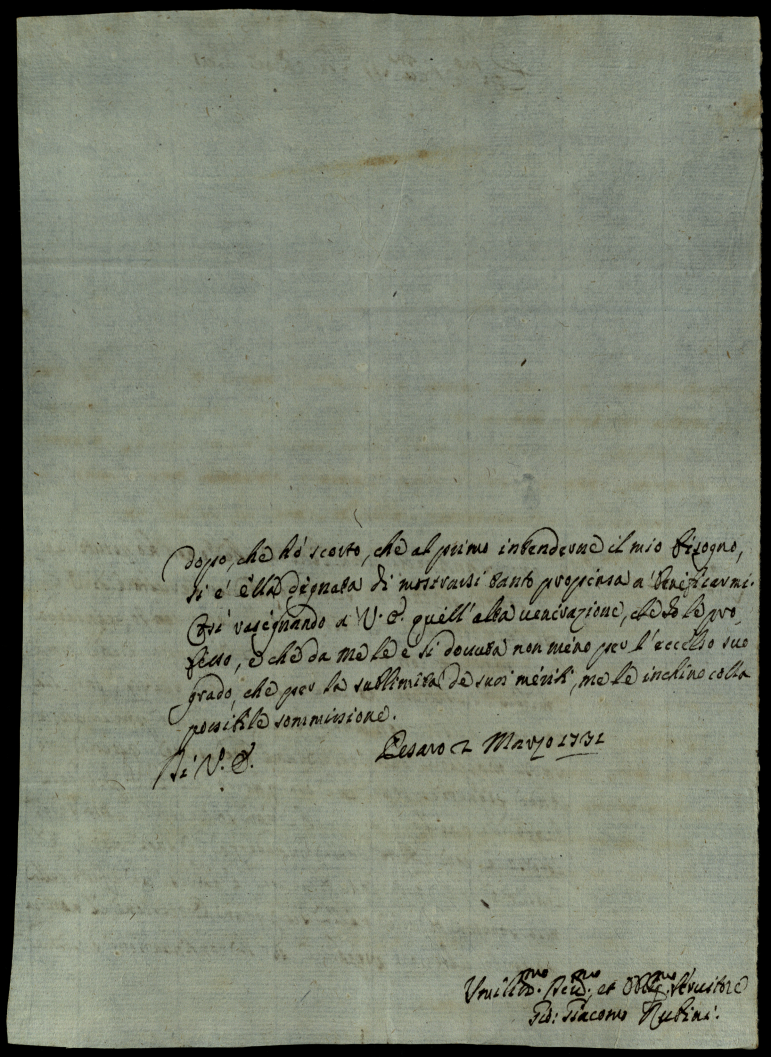 dopo, che hó scorto, che al primo intenderne il mio bisogno,
si é ella degnata di mostrarsi tanto propensa a beneficarmi.
Così rasegnando a V. E. quell'alta venerazione, che Io le pro,
fesso, e che da me le è si dovuta non meno per l'eccelso suo
grado, che per la sublimità de suoi mériti, me le inchino colla
possibile sommissione.
Di V. E. Pesaro 2 Marzo 1731
Umiliss.mo Dev.mo, et Obblig.mo Servitore
Gio: Giacomo Rubini.